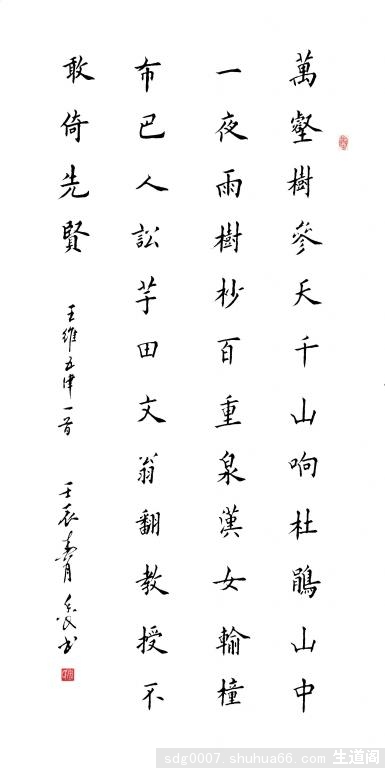 萬壑樹參天千山响杜鵑山中
一夜雨樹杪百重泉漢女輸橦
布巴人訟芋田文翁翻教授不
敢倚先賢
王維五律一首 壬辰
书
sdg0007.shuhua66.com 生道阁